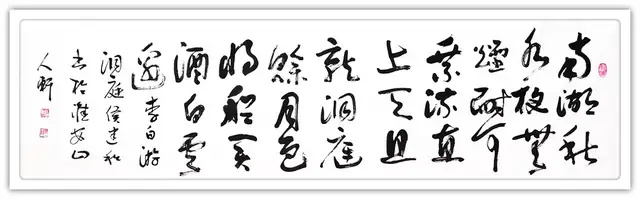 南湖秋
水夜無
煙耐可
乘流直
上天且
就洞庭
賒月色
將船買
酒白雲
邊 李白游
洞庭